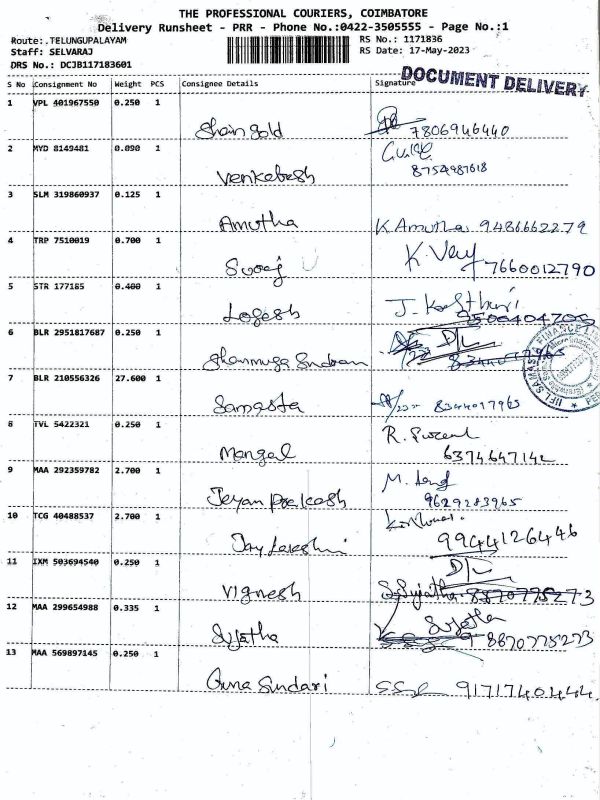 THE PROFESSIONAL COURIERS, COIMBATORE
Delivery Runsheet - PRR - Phone No.:0422-3505555 - Page No.:1
Route:.TELUNGUPALAYAM RS No.: 1171836
Staff: SELVARAJ RS Date: 17-May-2023
DRS No.: DCJB117183601
DOCUMENT DELIVERY
S No Consignment No Weight PCS Consignee Details Signature
1 VPL 401967550 0.250 1
Shain Gold 7806946440
2 MYD 8149481 0.090 1
Venkatesh 8754987618
3 SLM 319860937 0.125 1
Amutha K.Amutha 9486662279
4 TRP 7510019 0.700 1
Suraj K. 7660012790
5 STR 177185 0.400 1
Logesh J. Kasthuri 9500404709
6 BLR 2951817687 0.250 1
Shanmuga Sundaram D/L 8344017965
7 BLR 210556326 27.600 1
Samasta 8344017965
IIFL SAMASTA FINANCE
8 TVL 5422321 0.250 1
Mangal R. 6374647142
9 MAA 292359782 2.700 1
Jeyam Prakash M. 9629283965
10 TCG 40488537 2.700 1
Jay Lakshmi 9944126446
11 IXM 503694540 0.250 1
Vignesh D/L S.Sujatha 8870775273
12 MAA 299654988 0.335 1
Sujatha Sujatha 8870775273
13 MAA 569897145 0.250 1
Guna Sundari 9171740444